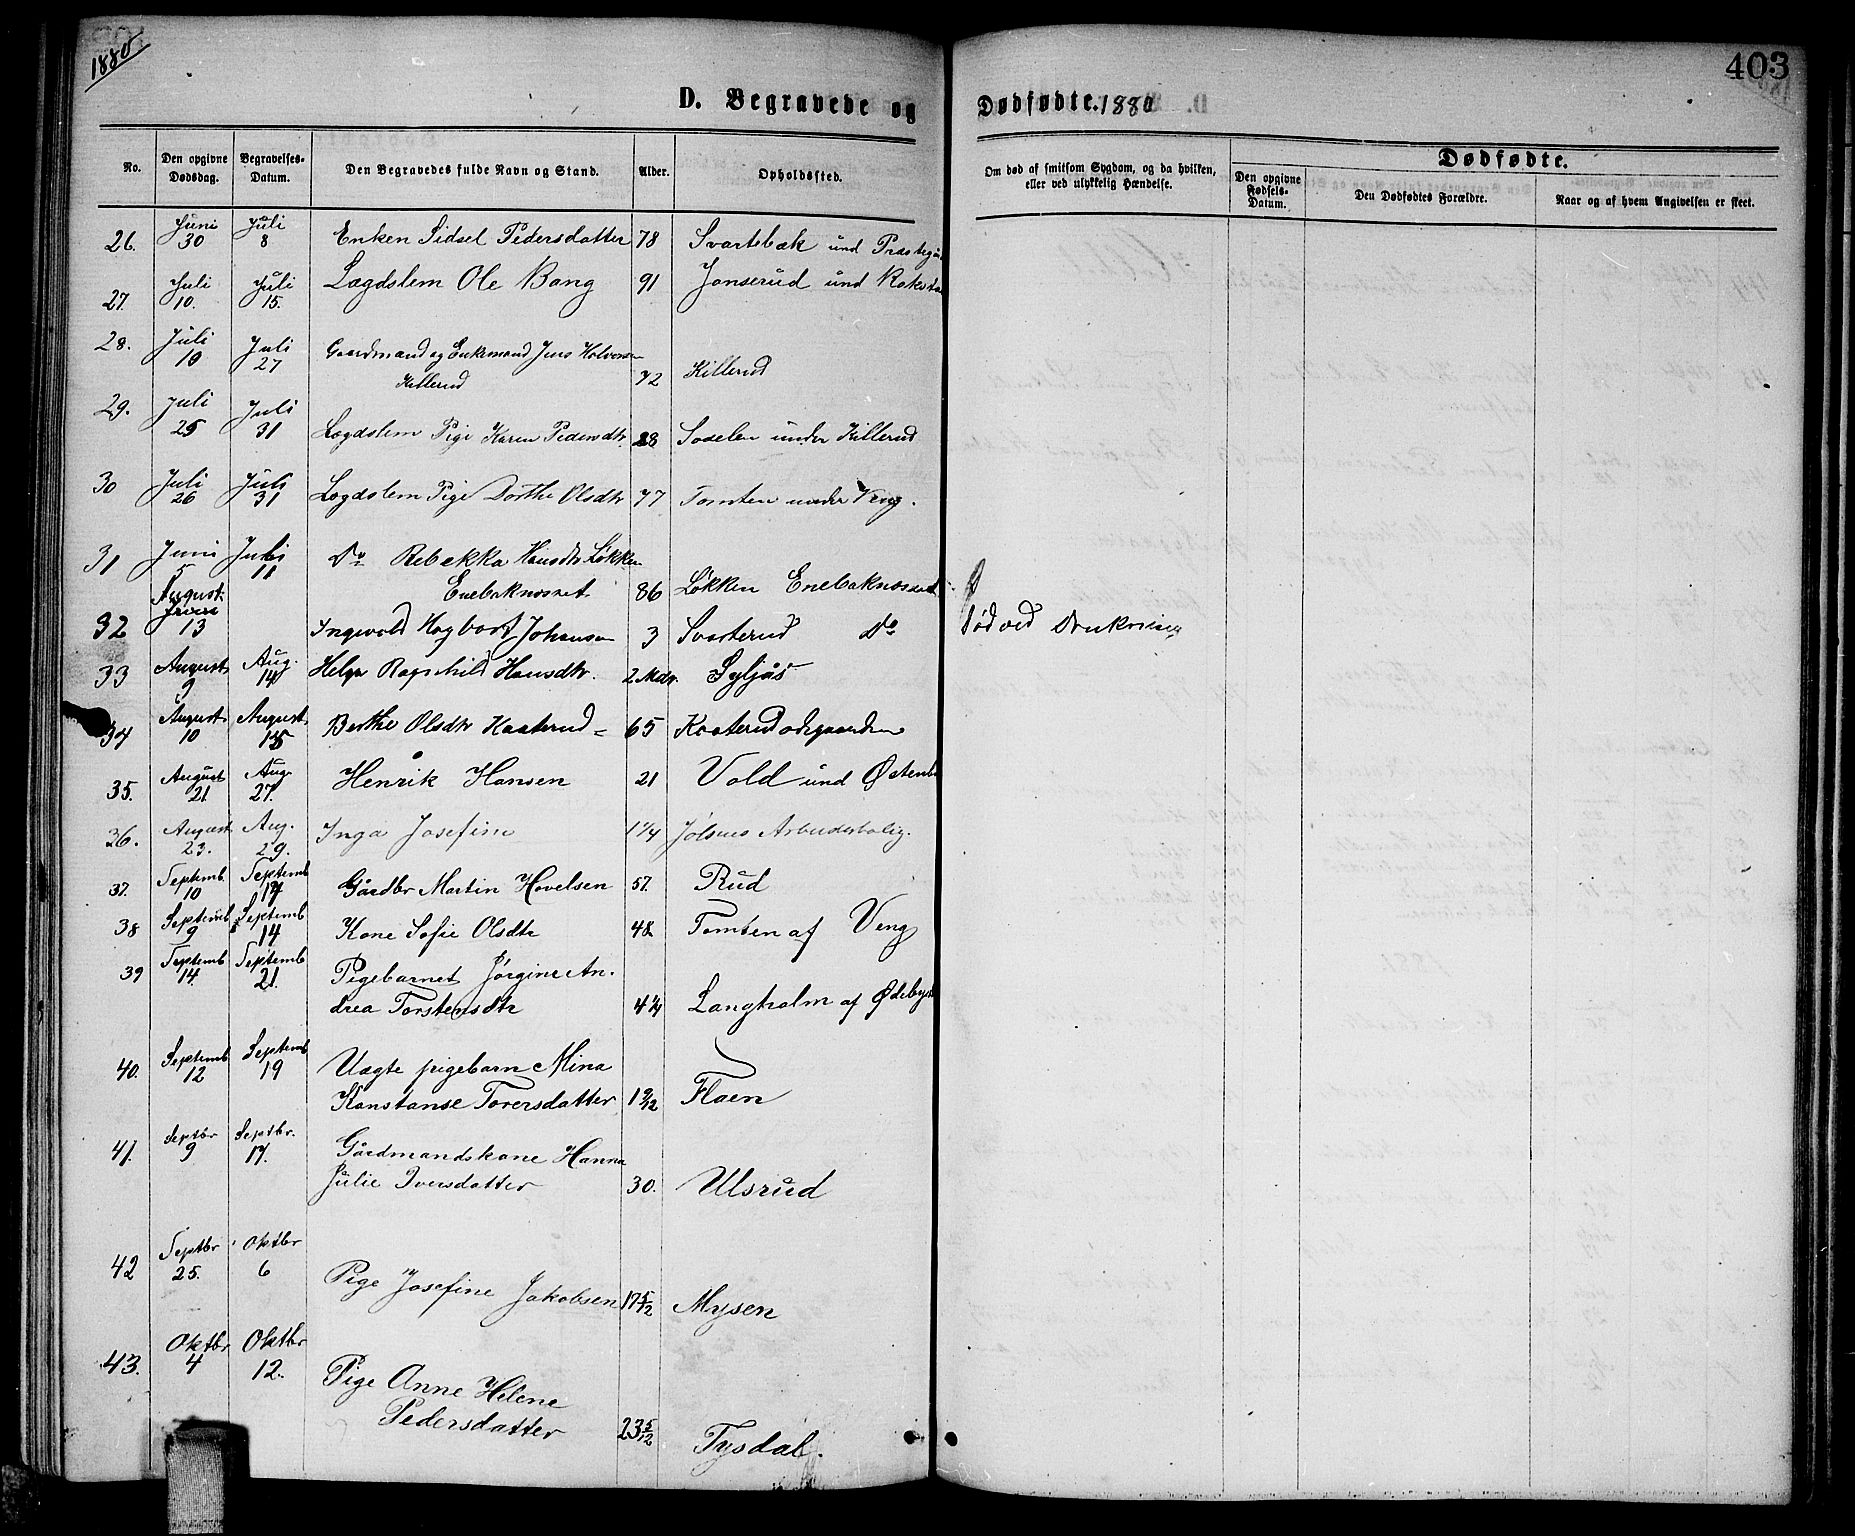 1880
403
D. Begravede og Dødfødte. 1880
No.
Den opgivne Dødsdag.
Begravelses-Datum.
Den Begravedes fulde Navn og Stand.
Alder.
Opholdssted.
Om død af smitsom Sygdom, og da hvilken, eller ved ulykkelig Hændelse.
Dødfødte.
Den opgivne Fødsels-Datum.
Den Dødfødtes Forældre.
Naar og af hvem Angivelsen er skeet.
26. Juni 30 Juli 8 Enken Sidsel Pedersdatter 78 Svartebæk und Præstegå
27. Juli 10. Juli 15. Lægdslem Ole Bang 91 Jonserud und
28. Juli 10 Juli 27 Gaardmand og Enkemand Jens Halvorsen
Killerud 72 Killerud
29. Juli 25 Juli 31 Lægdslem Pige Karen Pedersdtr. 28 under Killerud
30 Juli 26 Juli 31 Lægdslem Pige Dorthe Olsdtr 77 Tomten under Veng.
31 Juni 5 Juli 11 Do Rebekka Hansdtr Løkken
Enebaknesset 86 Løkken Enebaknesset
32 August 13 Ingvald Hagbart Johansen 3 Svarterud Do Død ved Drukning
33 August 9 Aug. 14 Helga Ragnhild Hansdtr. 2 Mdr. Syljås
34 August 10 August 15 Berthe Olsdtr Kaaterud 65 Kaaterudødegaarden
35. August 21 Aug. 27. Henrik Hansen 21 Vold und Østenb
36. August 23. Aug. 29. Inga Josefine 1 1/4 Jølsens Arbeiderbolig.
37. Septemb. 10 Septemb 17 Gårdbr Martin Hovelsen 57. Rud
38 Septemb 9 Septemb 14 Kone Sofie Olsdtr 48 Tomten af Veng
39 Septemb 14. Septemb 21. Pigebarnet Jørgine An-
drea Torstensdtr 4 1/4 Langholm af Ødeby
40. Septemb 12 Septemb 19 Uægte pigebarn Mina
Konstanse Torersdatter 1 9/12 Flaen
41. Septbr 9 Septbr. 17. Gårdmandskone Hanna
Julie Iversdatter 30. Ulsrud
42 Septbr 25. Oktbr 6 Pige Josefine Jakobsen 17 5/12 Mysen
43. Oktbr 4 Oktbr 12. Pige Anne Helene
Pedersdatter 23 5/12 Tysdal.